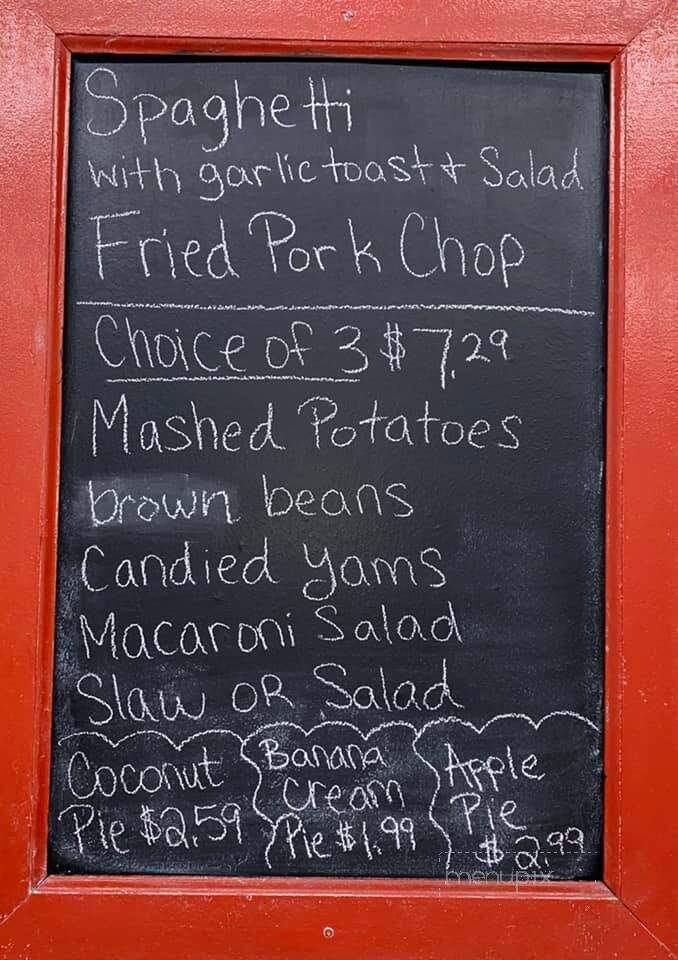 Spaghetti
with garlic toast & Salad
Fried Pork Chop
Choice of 3 $7.29
Mashed Potatoes
brown beans
Candied yams
Macaroni Salad
Slaw OR Salad
Coconut
Pie $2.59
Banana
Cream
Pie $1.99
Apple
Pie
$2.99
menupix